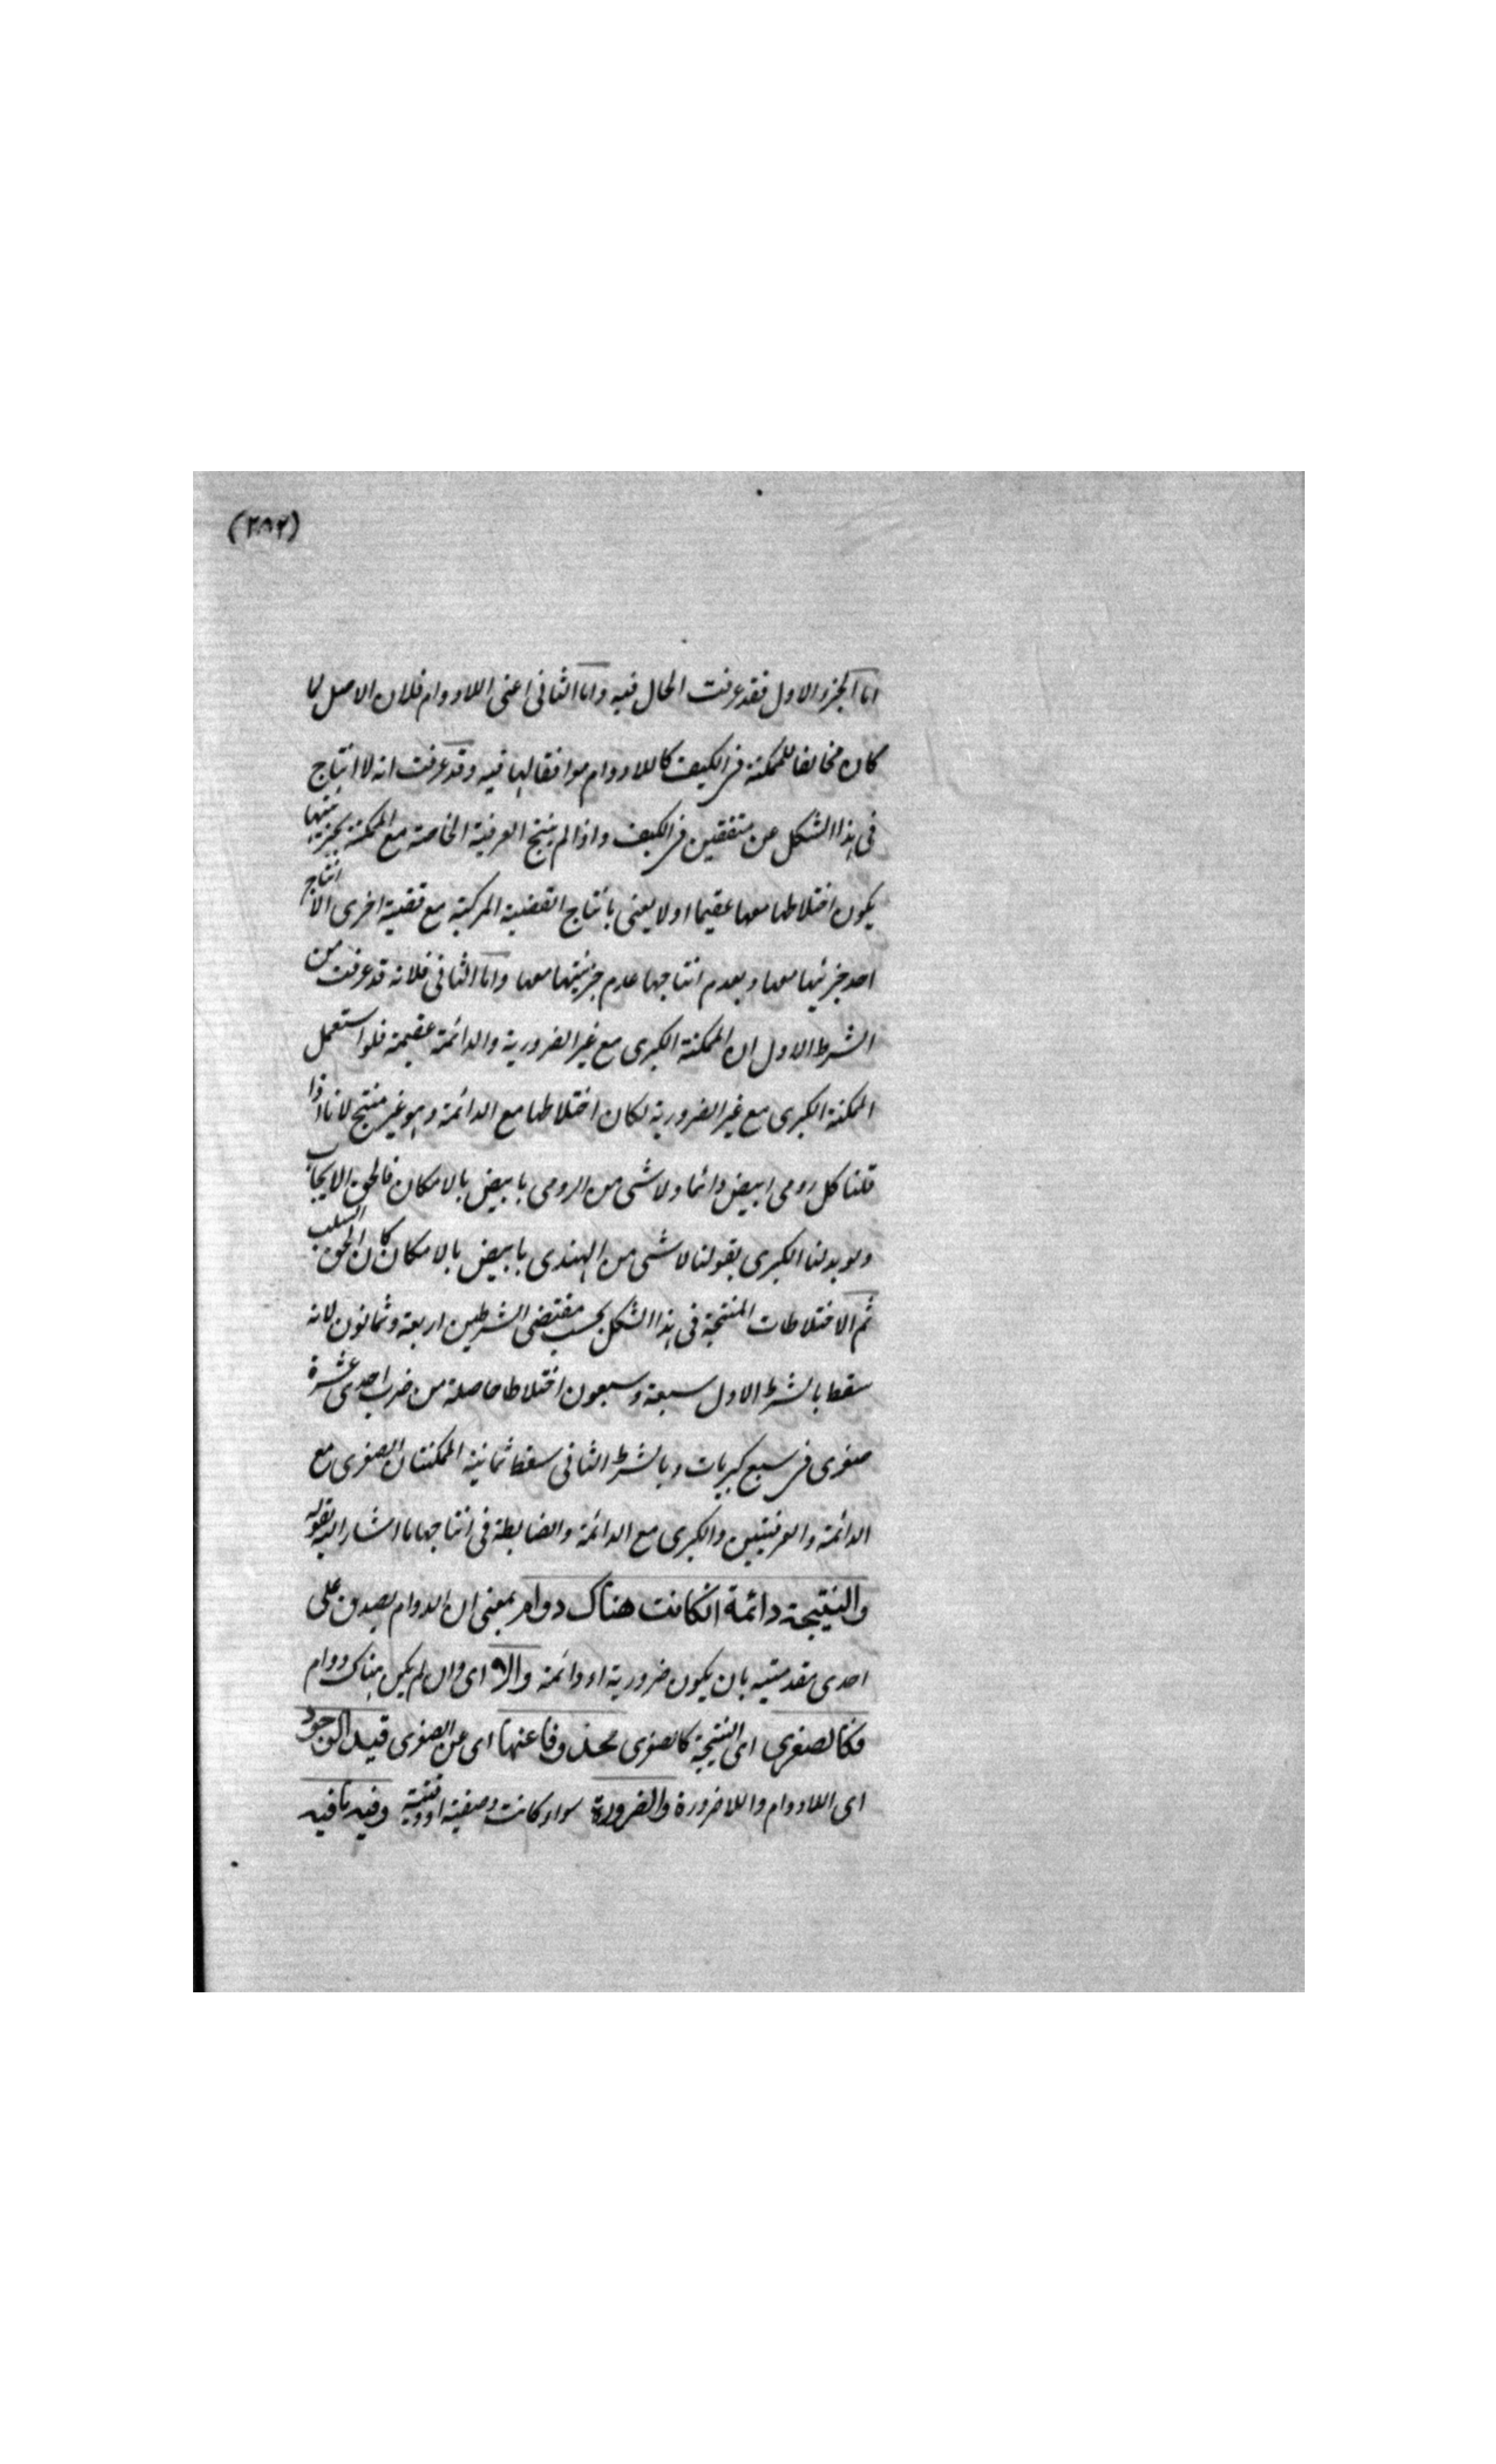 (٢٨٢)
اما الجزو الاول فقد عرفت الحال فيه واما الثانى اعنى اللادوام فلان الاصل لما
كان مخالفا للممكنة فى الكيف كاللادوام موافقا لها فيه وقد عرفت انه لا انتاج
فى هذا الشكل عن متفقين فى الكيف واذا لم ينتج العرفية الخاصة مع الممكنة بجزئيتها
يكون اختلاطها معها عقيما اولا يعنى بانتاج القضية المركبة مع قضية اخرى الا انتاج
احد جزئيها معها وبعدم انتاجها عدم جزئيتها معها واما الثانى فلانه قد عرفت من
الشرط الاول ان الممكنة الكبرى مع غير الضرورية والدائمة عقيمة فلو استعمل
الممكنة الكبرى مع غير الضرورية لكان اختلاطها مع الدائمة وهو غير منتج لانا اذا
قلنا كل رومى ابيض دائما ولا شى من الرومى بابيض بالامكان فالحق الايجاب
ولو بدلنا الكبرى بقولنا لا شى من الهندى بابيض بالامكان كان الحق السلب
ثم الاختلاطات المنتجة فى هذا الشكل بحسب مقتضى الشرطين اربعة وثمانون لانه
سقط بالشرط الاول سبعة وسبعون اختلاطا حاصلة من ضرب احدى عشرة
صغرى فى سبع كبريات وبالشرط الثانى سقط ثمانية الممكنتان الصغرى مع
الدائمة والعرفيتين والكبرى مع الدائمة والضابطة فى انتاجها ما اشار اليه بقوله
والنتيجة دائمة انكانت هناك دوام بمعنى ان الدوام يصدق على
احدى مقدمتيه بان يكون ضرورية او دائمة والا اى وان لم يكن هناك دوام
فكالصغرى اى النتيجة كالصغرى محذوفا عنها اى عن الصغرى قيد الوجود
اى اللادوام واللاضرورة والضرورة سواء كانت وصفية او وقتية وفيه ما فيه